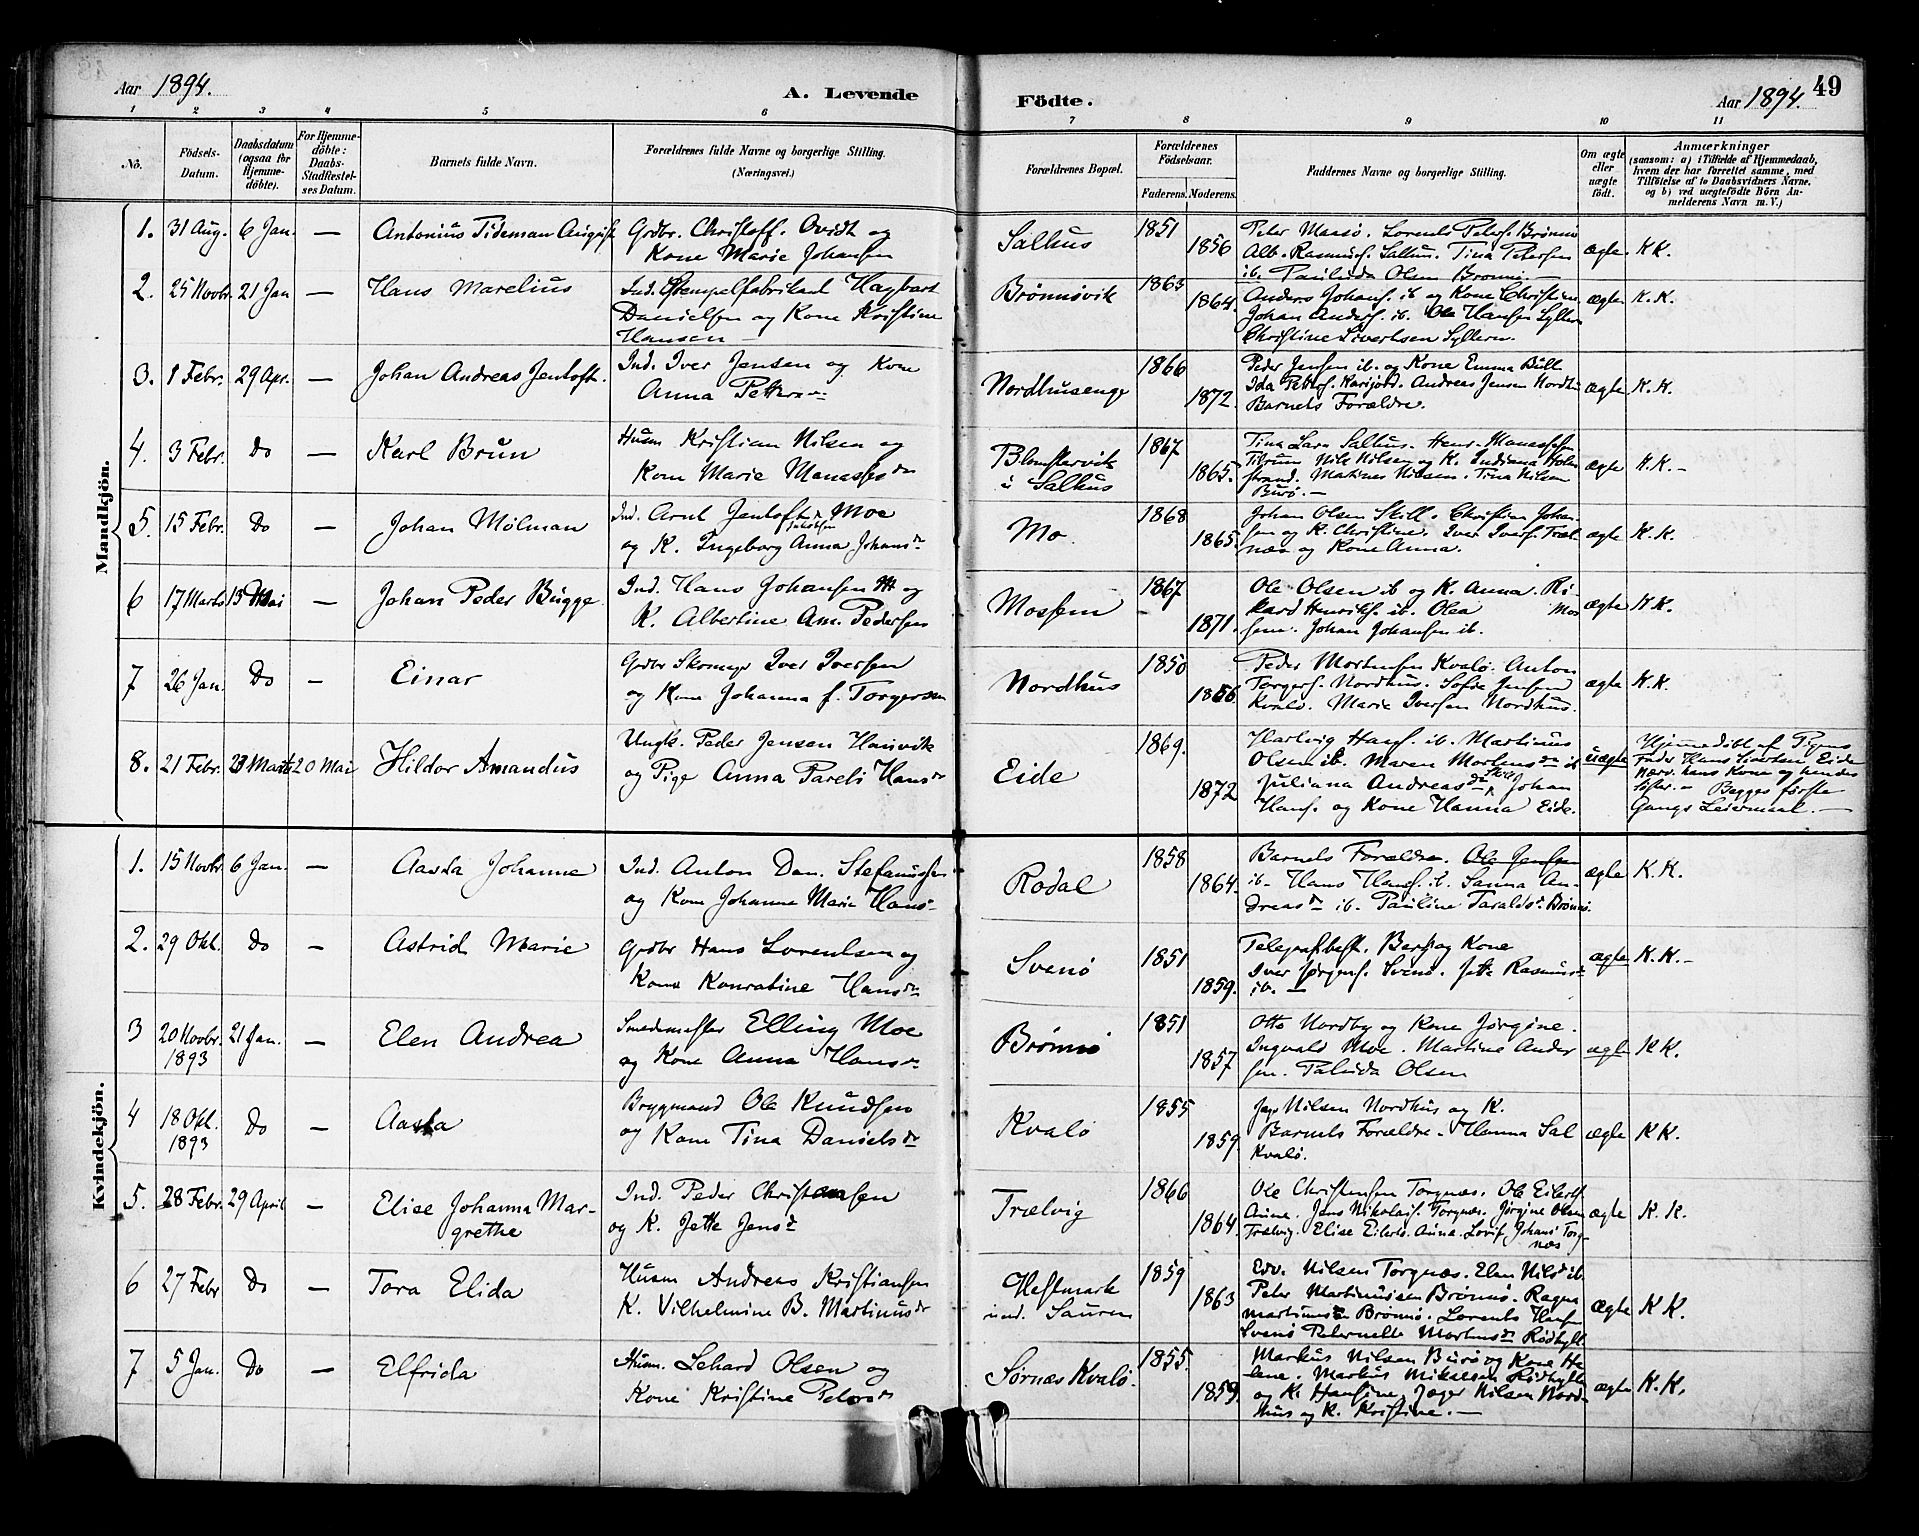 Aar 1894.
A. Levende
Födte.
Aar 1894.
49
1 2 3 4 5 6 7 8 9 10 11
No.
Födsels-
Datum.
Daabsdatum
(ogsaa for
Hjemme-
döbte).
For Hjemme-
döbte:
Daabs-
Stadfæstel-
ses Datum.
Barnets fulde Navn.
Forældrenes fulde Navne og borgerlige Stilling.
(Næringsvei.)
Forældrenes Bopæl.
Forældrenes
Födselsaar.
Faderens.
Moderens.
Faddernes Navne og borgerlige Stilling.
Om ægte
eller
uægte
födt.
Anmærkninger
(saasom: a) i Tilfælde af Hjemmedaab,
hvem der har forrettet samme, med
Tilföielse af to Daabsvidners Navne,
og b) ved uægtefödte Börn An-
melderens Navn m. V.)
Mandkjön.
1. 31 Aug. 6 Jan. — Antonius Tideman August
Grdbr. Christoff. Ovidt og
Kone Marie Johansen
Salhus 1851 1856
Peter Maasö. Lorents Peters. Brönnö
Alb. Rasmus. Salhus. Tina Petersen
ib. Paulida Olsen Brönnö —
ægte. KK.
2. 25 Novbr. 21 Jan — Hans Marelius
Ind. Stempelfabrikant Hagbart
Danielsen og Kone Kristine
Hansen —
Brönnövik 1863 1864.
Anders Johans. ib og Kone Christine
Johan Anders. ib. Ole Hansen Sylteren
Christine Sivertsen Sylteren.
ægte K.K.
3. 1 Febr. 29 Apr. — Johan Andreas Jentoft.
Ind. Iver Jensen og Kone
Anna Petters
Nordhusenge 1866 1872.
Peder Jensen ib. og Kone Emma Bött
Ida Peters. Karijord. Andreas Jensen Nordhus
Barnets Forældre.
ægte K.K.
4. 3 Febr. Do — Karl Brun
Husm Kristian Nilsen og
Kone Marie Manassesdr
Blomstervik
u Salhus 1867 1865.
Tina Lara Salhus. Henr. Manassesen
Tilrum Nils Nilsen og K. Indiana Holm
strand. Matinus Nilsen. Tina Nilsen
Burö. —
ægte K.K.-
5. 15 Febr. Do — Johan Mölman
Ind. Arnt Jentoft Jakobsen Moe
og K. Ingeborg Anna Johansdr
Mo. 1868 1865.
Johan Olsen Skill. Christian Johan-
sen og K. Christine. Iver Ivers. Træl
næs og Kone Anna.
ægte K.K.
6 17 Marts 13 Mai — Johan Peder Bugge.
Ind. Hans Johansen M og
K. Albertine Am. Pedersen
Mossem 1867 1871.
Ole Olsen ib og K. Anna. Ri-
kard Henriks. ib. Olea Mos
sem. Johan Johansen ib.
ægte KK.
7 26 Jan. Do — Einar
Grdbr Skomager Iver Iversen
og Kone Johanna f. Torgersen
Nordhus 1850 1856.
Peder Mortensen Kvalö. Anton
Torgers. Nordhus. Sofie Jensen
Kvalö. Marie Iversen Nordhus.
ægte K.K.
8. 21 Febr. 23 Marts 20 Mai Hildor Amandus
Ungk. Peder Jensen Hamvik
og Pige Anna Pareli Hansdr
Eide 1869. 1872
Hartvig Hans. ib. Martinus
Olsen ib. Maren Mortensdr ib
Juliana Andreasdr Skill Johan
Hans. og Kone Hanna Eide.
uægte
Hjemmedöbt af Pigens
Fader Hans Sivertsen Eide
Nærv. hans Kone og hendes
Söster. — Begges förste
Gangs Leiermaal. —
Kvindekjön.
1. 15 Novbr. 6 Jan. — Aasta Johanne
Ind. Anton Dan. Stefanussen
og Kone Johanna Marie Hans-
Rodal 1858 1864.
Barnets Forældre. Ole Jensen
ib. Hans Hans. ib. Sanna An-
dreasdr ib. Pauline Taraldsdr Brönnö.
ægte K.K.
2. 29 Okt. Do — Astrid Marie
Grdbr Hans Lorentsen og
Kone Konratine Hansdr
Svenö 1851 1859.
Telegrafbest. Berg og Kone
Iver Jörgens. Svenö. Jette Rasmusdr
ib. —
ægte K.K.-
3 20 Novbr.
1893 21 Jan. — Elen Andrea
Smedemester Elling Moe
og Kone Anna Hansdr
Brönnö 1851 1857
Otto Nordby og Kone Jörgine.
Ingvald Moe. Martine Ander
sen. Palida Olsen
ægte KK.
4 18 Okt.
1893 Do — Aasta
Bryggmand Ole Knudsen
og Kone Tina Danielsdr
Kvalö 1855 1859
Jap Nilsen Nordhus og K.
Barnets Forældre. Hanna Sal
Kvalö.
ægte KK.
5. 28 Febr. 29 April — Elise Johanna Mar-
grethe
Ind. Peder Christensen
og K. Jette Jensdr
Trælvig 1866 1864.
Ole Christensen Torgnæs. Ole Eilerts
Anna. Jens Nikolais. Torgnæs. Jörgine Olsen
Trælvig. Elise Eilerts. Anna Lovis. Johans Torg-
næs
ægte K.K.
6 27 Febr Do — Tora Elida
Husm Andreas Kristiansen
K. Vilhelmine B. Martinusdr
Hestmark
und. Sauren 1859 1863
Edv. Nilsen Torgnæs. Elen Nilsd ib.
Peter Martinussen Brönnö. Ragna
Martinusdr Brönnö. Lorents Hansen
Svenö Peternelle Martinusdr Rödhylt
Ægte KK.
7 5 Jan. Do — Elfrida
Husm. Lehard Olsen og
Kone Kristine Petersdr
Sörnæs Kvalö. 1855. 1859.
Markus Nilsen Burö og Kone He-
lene. Markus Mikelsen Rödhylt
og K. Hansine. Jæger Nilsen Nord-
hus og K. Kristine. —
ægte K.K.